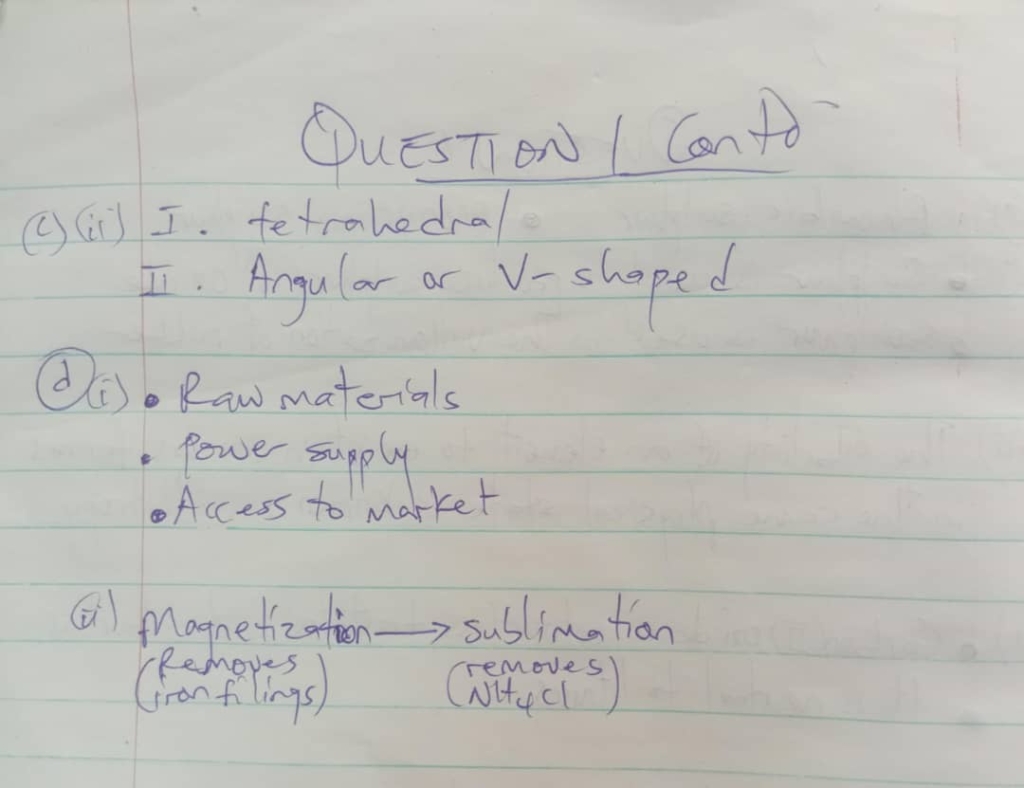 QUESTION 1 Contd
(c)(ii) I. tetrahedral
II. Angular or V-shaped
(d)(i) • Raw materials
• Power supply
• Access to market
(ii) Magnetization → sublimation
(Removes (removes
iron filings) NH4Cl)